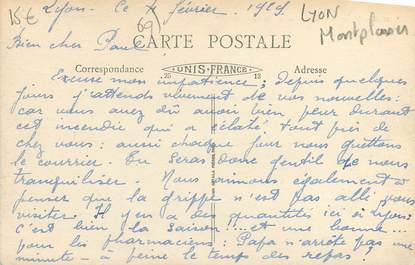 15€
69
LYON
Montplaisir
Lyon. Le 7 février. 1929.
Bien cher Paul
CARTE POSTALE
Correspondance
UNIS-FRANCE
20
13
Adresse
Excuse mon impatience; depuis quelques
jours j'attends vivement de vos nouvelles:
car vous avez dû avoir bien peur durant
cet incendie qui a éclaté, tout près de
chez vous: aussi chaque jour nous guettons
le courrier. Tu seras donc gentil de nous
tranquiliser Nous aimons également à
penser que la grippe n'est pas allé vous
visiter. Il y en a des quantités ici à Lyon;
c'est bien la saison... et une bonne...
pour les pharmaciens: Papa n'arrête pas une
minute - à peine le temps des repas;